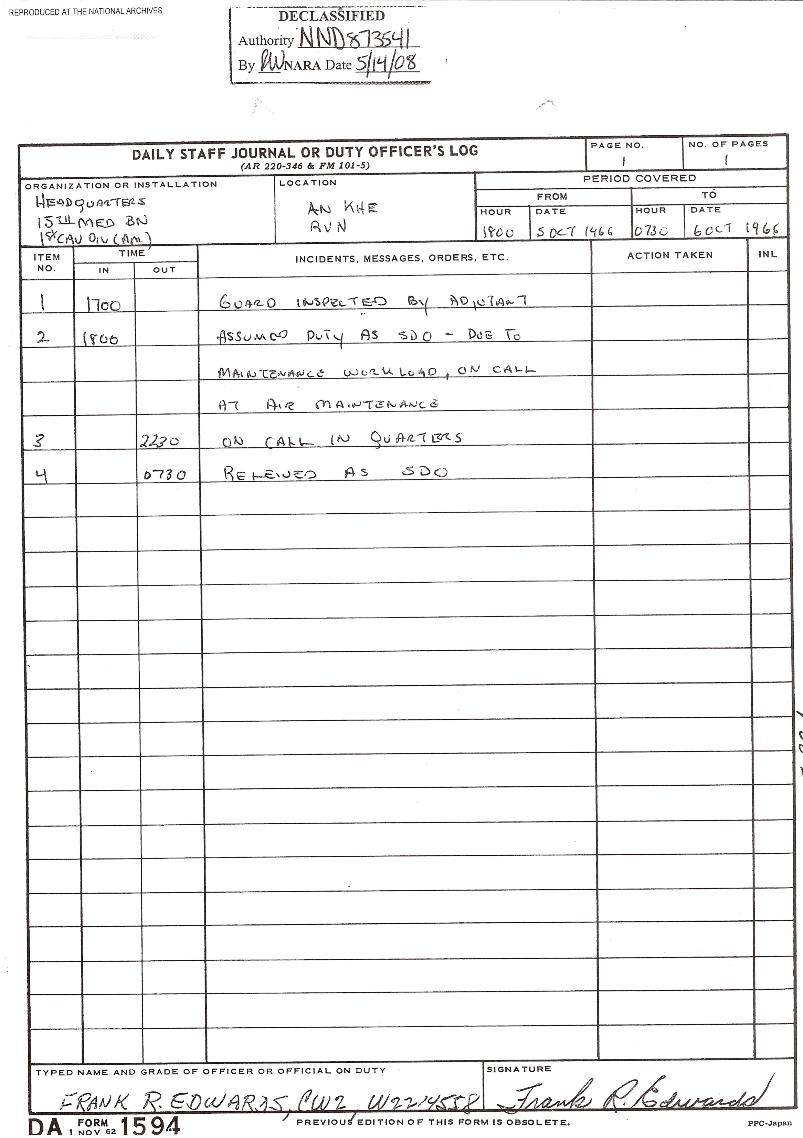 REPRODUCED AT THE NATIONAL ARCHIVES
DECLASSIFIED
Authority NND873541
By NARA Date 5/14/08
DAILY STAFF JOURNAL OR DUTY OFFICER'S LOG
(AR 220-346 & FM 101-5)
PAGE NO.
1
NO. OF PAGES
1
ORGANIZATION OR INSTALLATION
HEADQUARTERS
15TH MED BN
1st CAV DIV (AM)
LOCATION
AN KHE
RVN
PERIOD COVERED
FROM
TO
HOUR
DATE
HOUR
DATE
1800
5 OCT 1966
0730
6 OCT 1966
ITEM NO.
TIME
IN
OUT
INCIDENTS, MESSAGES, ORDERS, ETC.
ACTION TAKEN
INL
1 1700 GUARD INSPECTED BY ADJUTANT
2 1800 ASSUMED DUTY AS SDO - DUE TO
MAINTENANCE WORKLOAD, ON CALL
AT AIR MAINTENANCE
3 2230 ON CALL IN QUARTERS
4 0730 RELEIVED AS SDO
TYPED NAME AND GRADE OF OFFICER OR OFFICIAL ON DUTY
FRANK R. EDWARDS, CW2, W2214558
SIGNATURE
Frank R. Edwards
DA FORM 1 NOV 62 1594
PREVIOUS EDITION OF THIS FORM IS OBSOLETE.
PPC-Japan